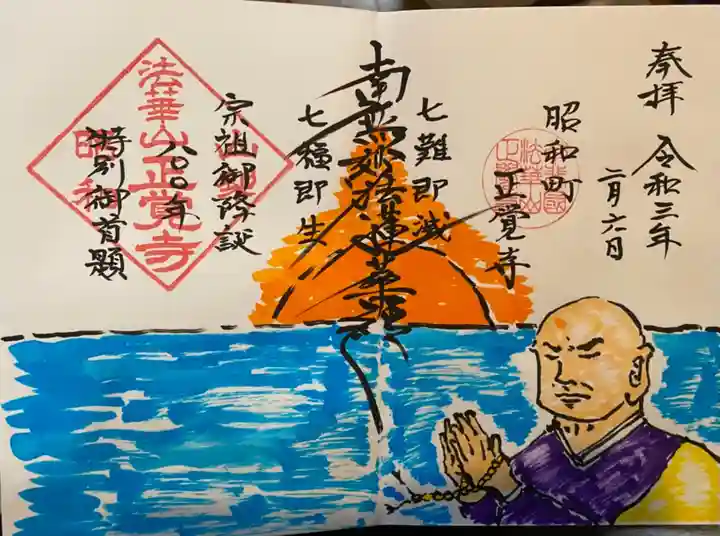 奉拝 令和三年
二月六日
昭和町
正覚寺
七難即滅
南無妙法蓮華経
七福即生
宗祖御降誕
八〇〇年
特別御首題
法華山正覚寺
山梨
昭和